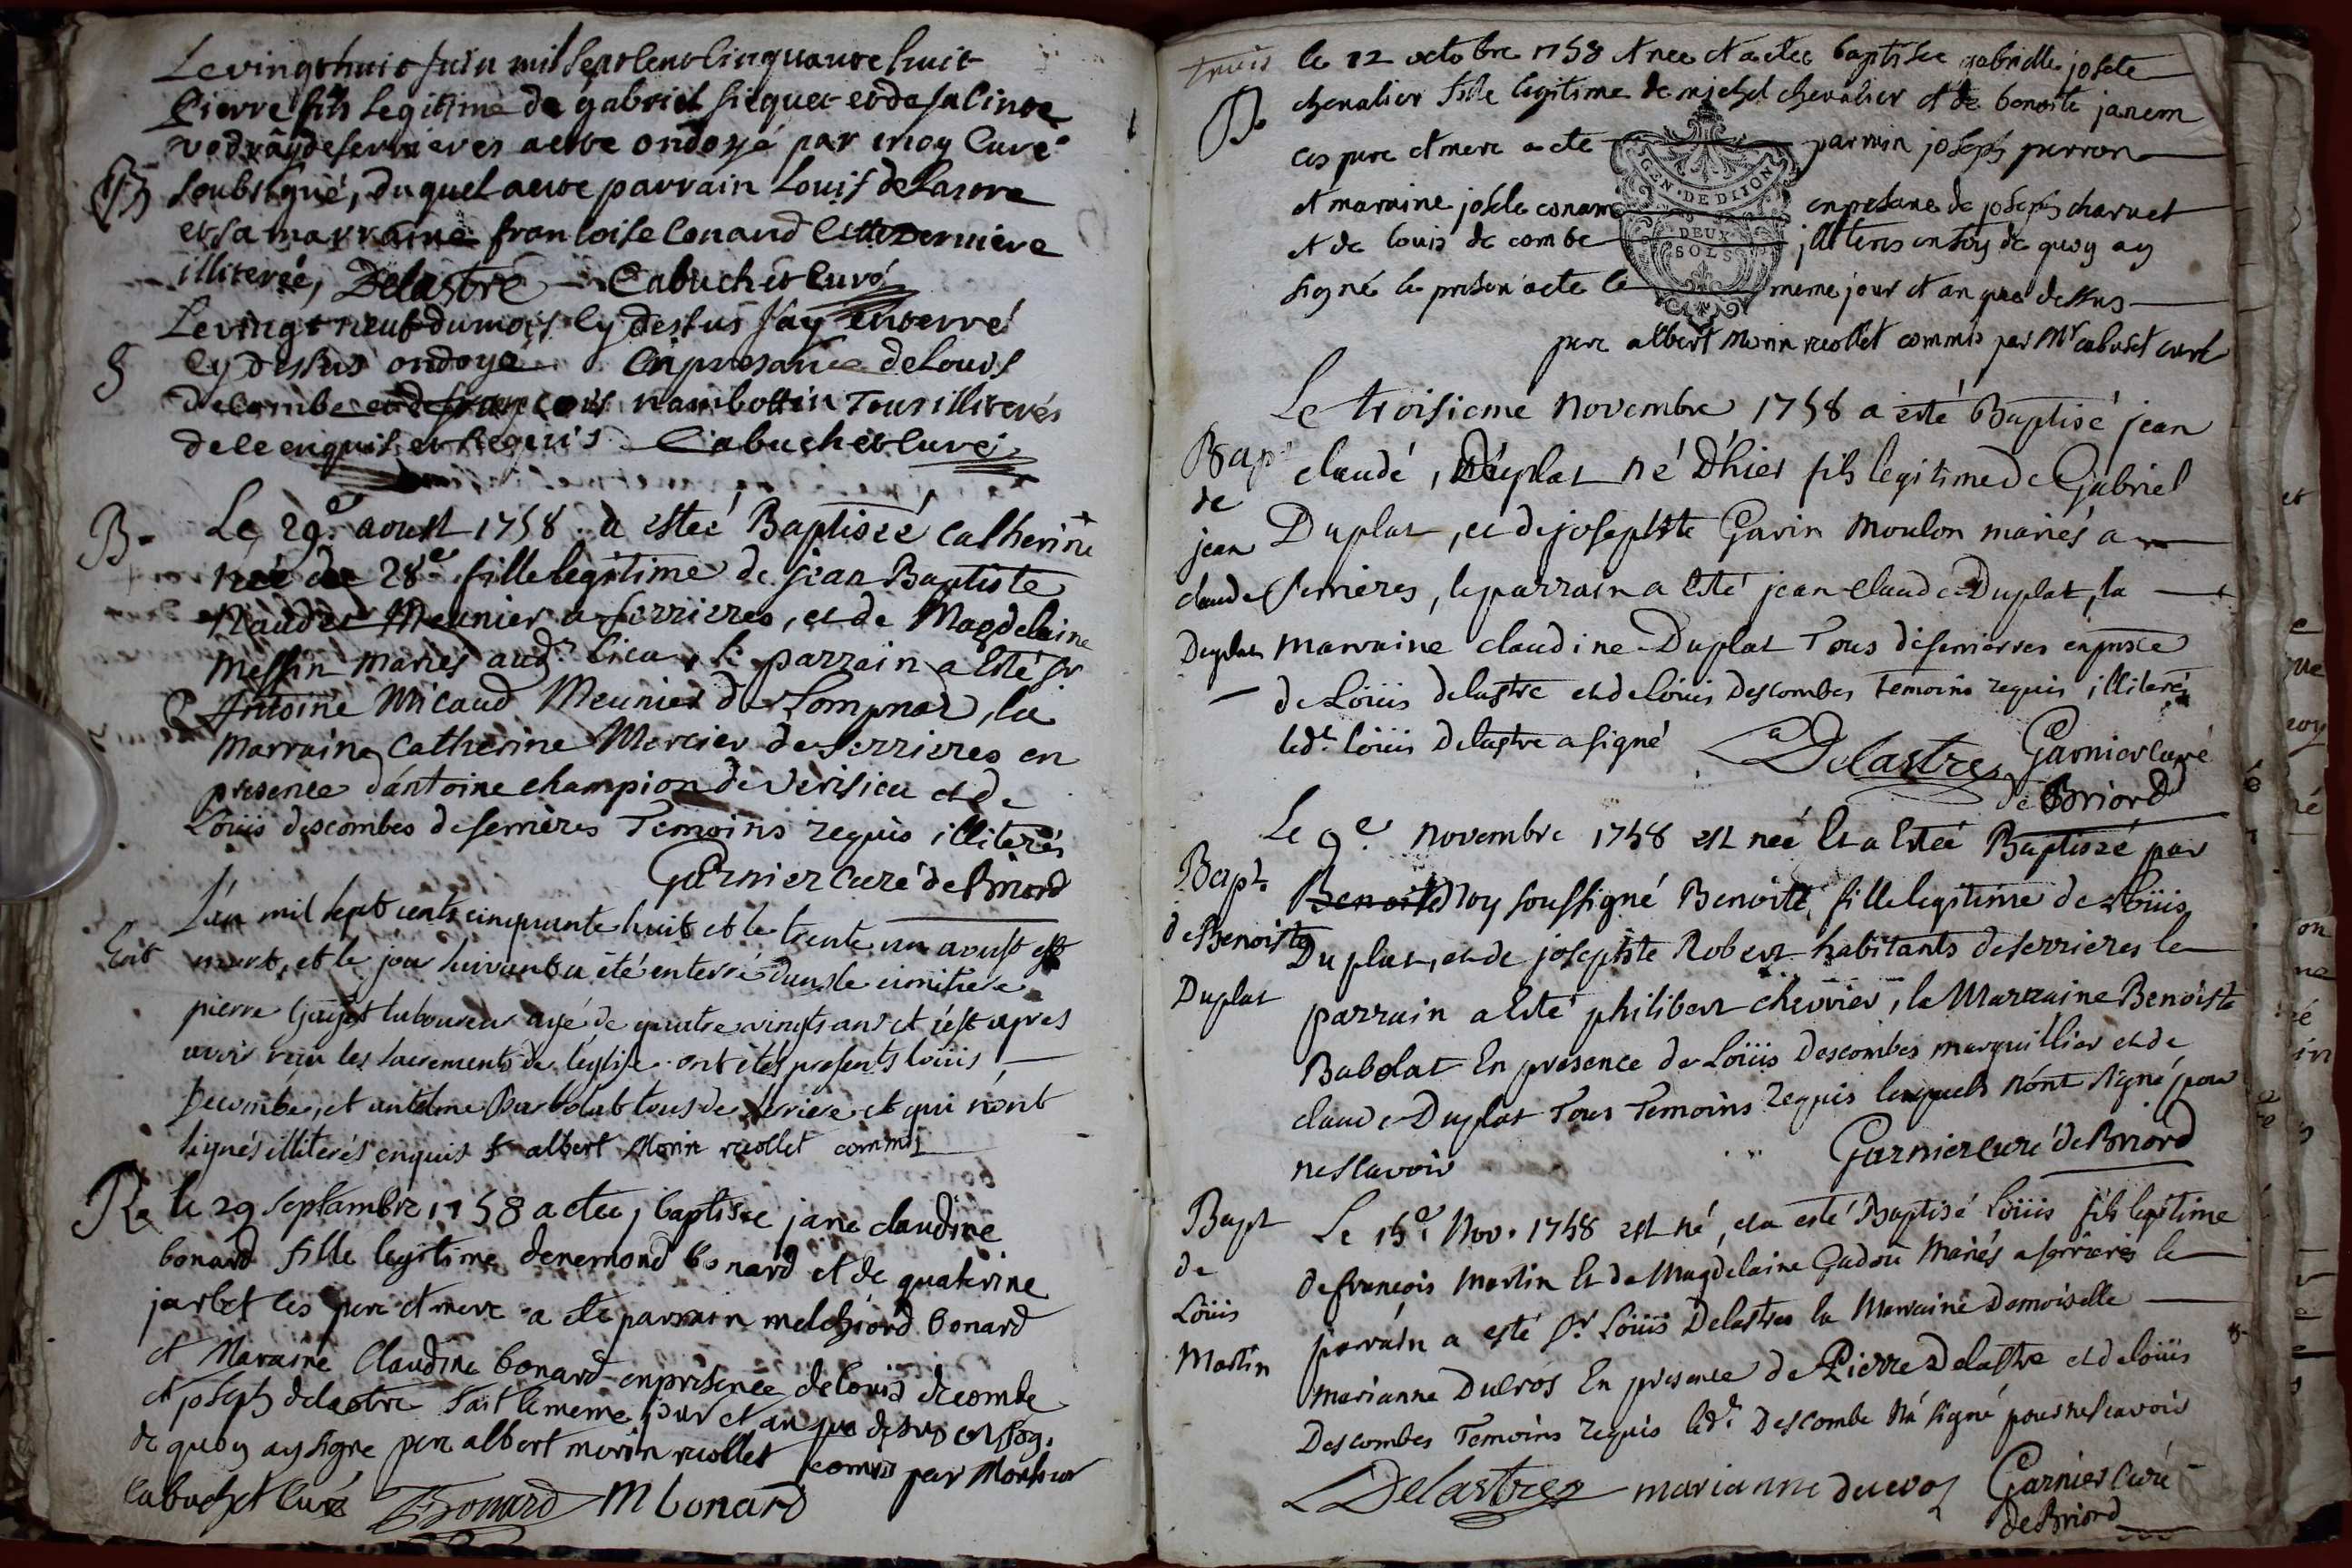 Le vingt huit juin mil sept cent cinquante huit
Pierre fils legitime de gabriel et de
de serrieres a etté ondoyé par moy Curé
B
soubsigné, du quel a etté parrain Louis Delastre
et sa marraine francoise Conand cette derniere
illiterée, Delastre Cabuchet Curé
Le vingt neuf du mois cy dessus j'ay enterré
S cy dessus ondoyé en presance de Louis
decombe et de françois nambottin Tous illiterés
de ce enquis et requis Cabuchet Curé
B. Le 29.e aoust 1758 a estéé Baptiséé Catherine
néé le 28e fille legitime de jean Baptiste
Naudet Meunier a serrieres, et de Magdelaine
Messin mariés aud.t lieu, le parrain a esté sr
Antoine Micaud Meunier de Lompnas, la
marraine Catherine Mercier de serrieres en
presence d'antoine champion de verisieu et de
Loüis descombes de serrieres Temoins requis illiterés
Garnier curé de Briord
L'an mil sept cents cinquante huit et le trente un aoust est
Ent mort, et le jour suivant a été enterré dans le cimitiere
pierre laboureur agé de quatre vingts ans et s'est apres
avoir reçu les sacrements de l'eglise. ont étés presents loüis
Decombe, et antelme Barbolat tous de serriere et qui n'ont
signés illiterés enquis f. albert Morin recollet commis
B le 29 septambre 1758 a etee baptisee jane claudine
bonard fille legitime de nemond bonard et de quaterine
jarlet ces pere et mere a ete parrain melchiord bonard
et Maraine Claudine bonard en presence de louis decombe
et joseph delastre fait le meme jour et an que desus en foy
de quoy ay signe pere albert morin recollet comis par Monsieur
cabuchet curé Bonard M bonard
le 12 octobre 1758 et nee et a etee baptisee gabrielle josete
B.
chevalier fille legitime de michel chevalier et de benoite janem
ces pere et mere a ete parrain joseph perron
et maraine josete conam en presance de joseph charvet
et de louis de combe illiteres en foy de quoy ay
signé le presen acte le meme jour et an que dessus
GEN. DE DIJON
DEUX
SOLS
pere albert Morin recollet commis par Mr cabuset curé
Le troisieme Novembre 1758 a esté Baptisé jean
Bap.
de
jean
claude
Duplat
claude, Duplat né D'hier fils legitime de Gabriel
Duplat, et de josephte Gavin Moulon mariés a
serrieres, le parrain a esté jean claude Duplat, la
marraine claudine Duplat Tous de serrieres en presce
de Loüis delastre et de loüis Descombes Temoins requis illiterés
led.t loüis Delastre a signé Delastre Garnier curé
de Briord
Le 9.e novembre 1758 est néé et a estéé Baptiséé par
Bapt.
de Benoiste
Duplat
Benoite Moy soussigné Benoite fille legitime de Loüis
Duplat, et de josephte Robert habitants de serrieres le
parrain a esté philibert chevrier, la Marraine Benoiste
Babolat En presence de Loüis Descombes marguillier et de
claude Duplat Tous Temoins requis lesquels n'ont signé pour
ne scavoir Garnier curé de Briord
Bapt
de
Loüis
Martin
Le 15.e Nov. 1758 est né, et a esté Baptisé Loüis fils legitime
de francois Martin Et de Magdelaine Gadou Mariés a serrieres le
parrain a esté sr. Loüis Delastre la Marraine Demoiselle
Marianne Ducros En presence de Pierre Delastre et de loüis
Descombes Temoins requis led.t Descombe N'a signé pour ne scavoir
Delastre marianne ducros Garnier curé
de Briord